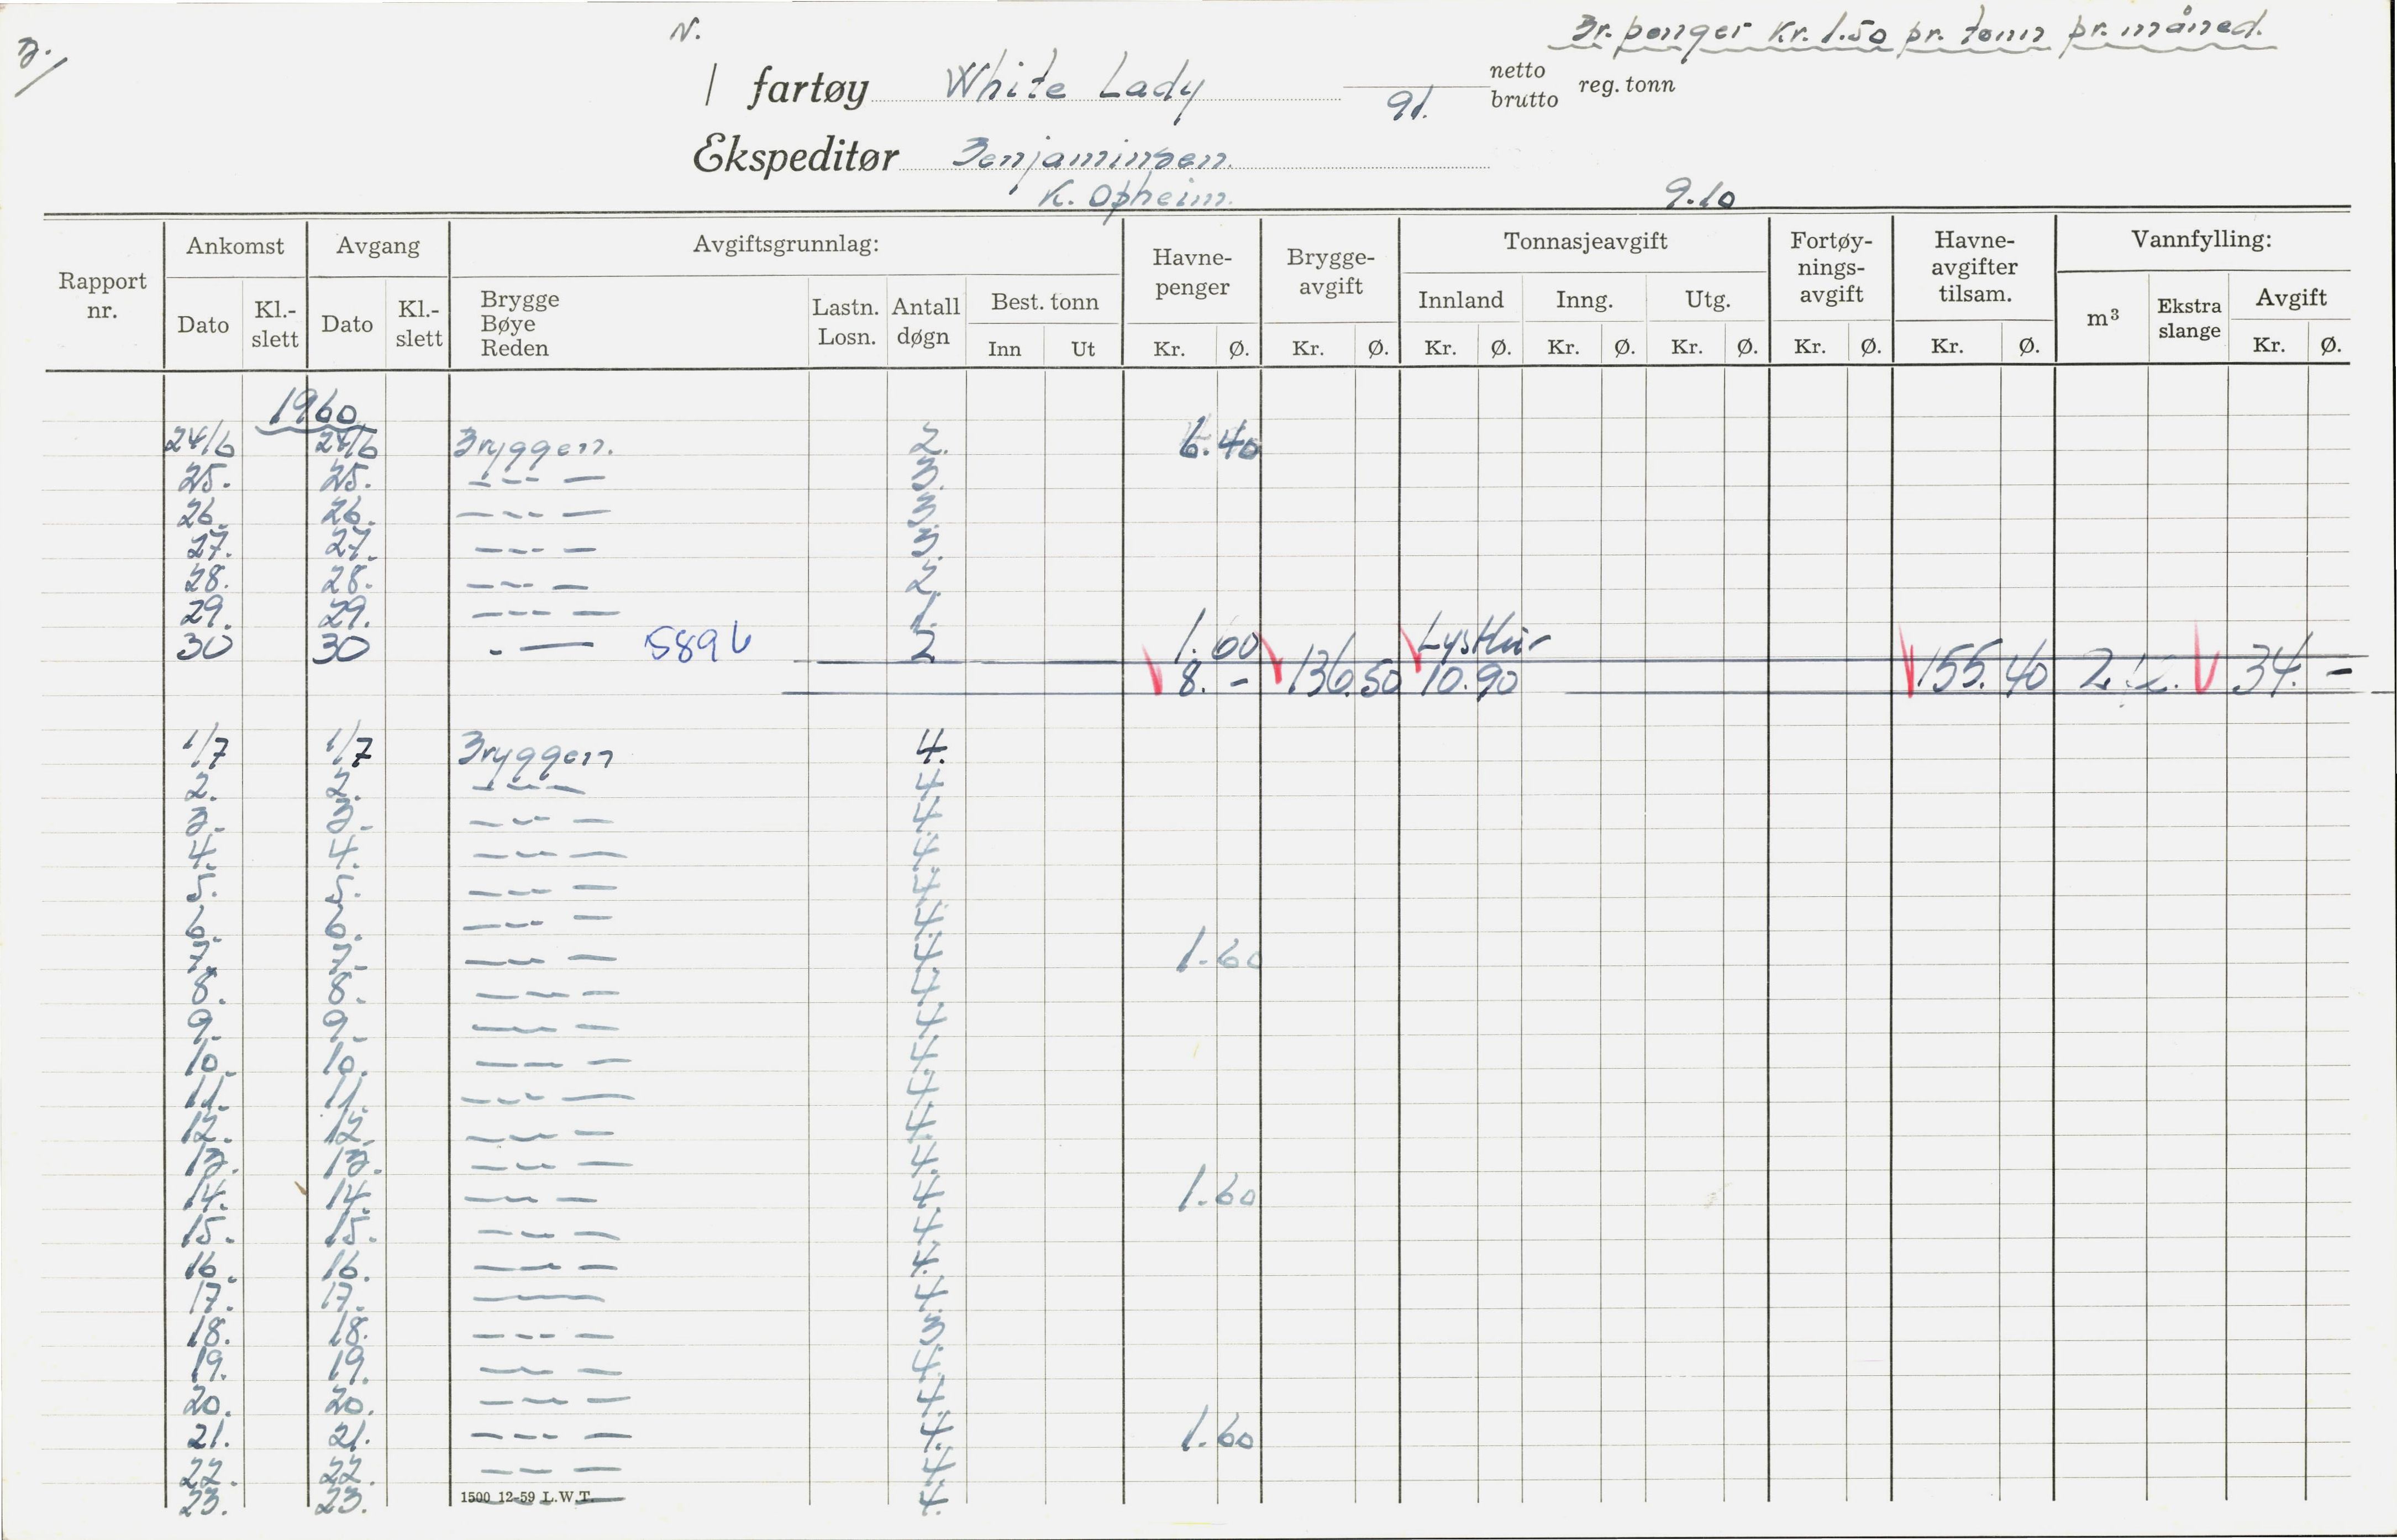 N. Br. penger Kr. 1.50 pr. tonn pr. måned.
| fartøy White Lady 91. netto brutto reg. tonn
Ekspeditør Benjaminsen.
K. Opheim. 9.10
Rapport nr. Ankomst Avgang Avgiftsgrunnlag: Havne-penger Brygge-avgift Tonnasjeavgift Fortøy-nings-avgift Havne-avgifter tilsam. Vannfylling:
Dato Kl.-slett Dato Kl.-slett Brygge Bøye Reden Lastn. Losn. Antall døgn Best. tonn Innland Inng. Utg. m³ Ekstra slange Avgift
Inn Ut Kr. Ø. Kr. Ø. Kr. Ø. Kr. Ø. Kr. Ø. Kr. Ø. Kr. Ø. Kr. Ø.
1960
24/6 24/6 Bryggen. 2. 6.40
25. 25. --- — 3.
26. 26. --- — 3.
27. 27. --- — 3.
28. 28. --- — 2.
29. 29. --- — 1.
30 30 - — 5896 2 1.60 Lysthür
8.- 136.50 10.90 155.40 34.-
1/7 1/7 Bryggen 4.
2. 2. --- — 4
3. 3. --- — 4.
4. 4. --- — 4.
5. 5. --- — 4.
6. 6. --- — 4.
7. 7. --- — 4. 1.60
8. 8. --- — 4.
9. 9. --- — 4.
10. 10. --- — 4.
11. 11. --- — 4.
12. 12. --- — 4.
13. 13. --- — 4.
14. 14. --- — 4. 1.60
15. 15. --- — 4.
16. 16. --- — 4.
17. 17. --- — 4.
18. 18. --- — 3.
19. 19. --- — 4.
20. 20. --- — 4.
21. 21. --- — 4. 1.60
22. 22. --- — 4.
23. 23. --- — 4.
1500 12-59 L.W.T.